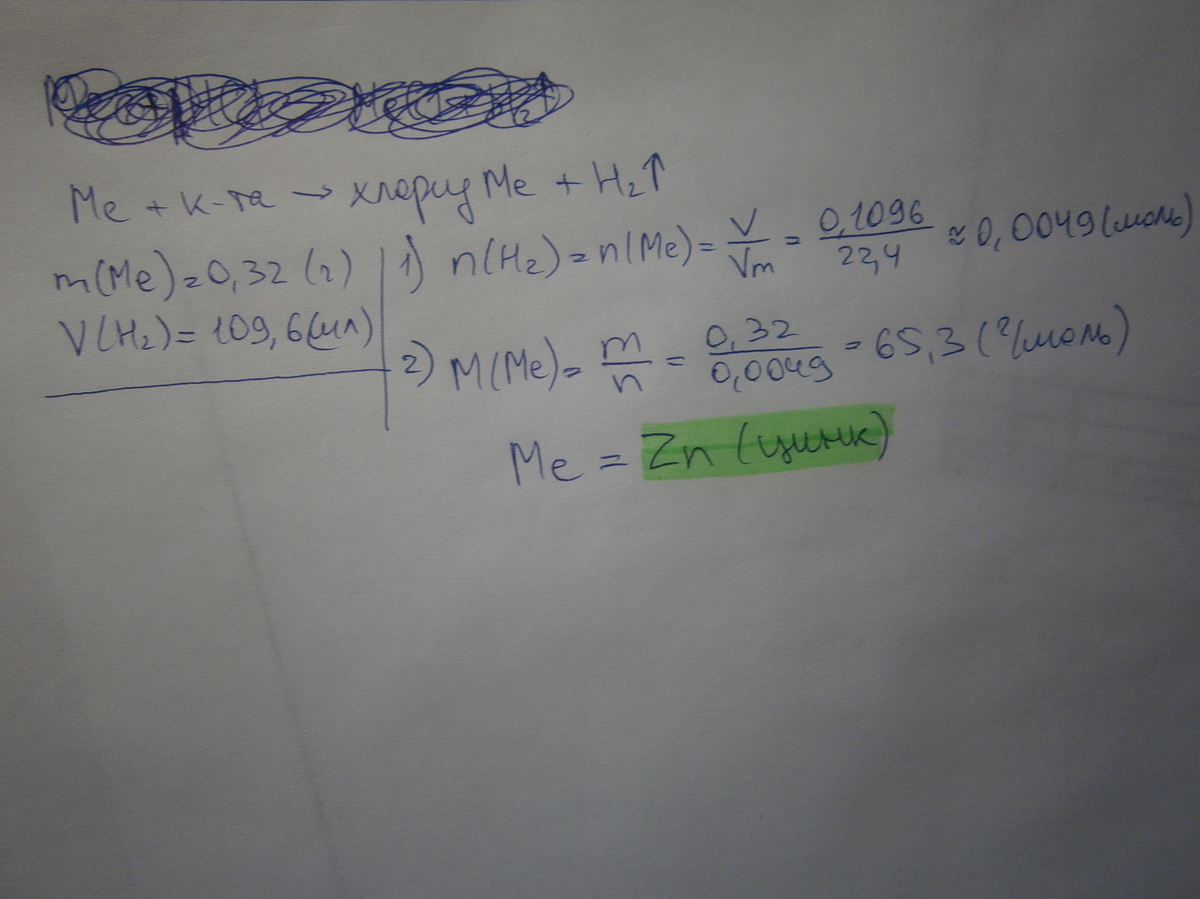 Ме + к-та → хлорид Ме + H₂↑
m(Me) = 0,32 (г)
V(H₂) = 109,6 (мл)
1) n(H₂) = n(Me) = V/Vm = 0,1096/22,4 ≈ 0,0049 (моль)
2) M(Me) = m/n = 0,32/0,0049 = 65,3 (г/моль)
Me = Zn (цинк)